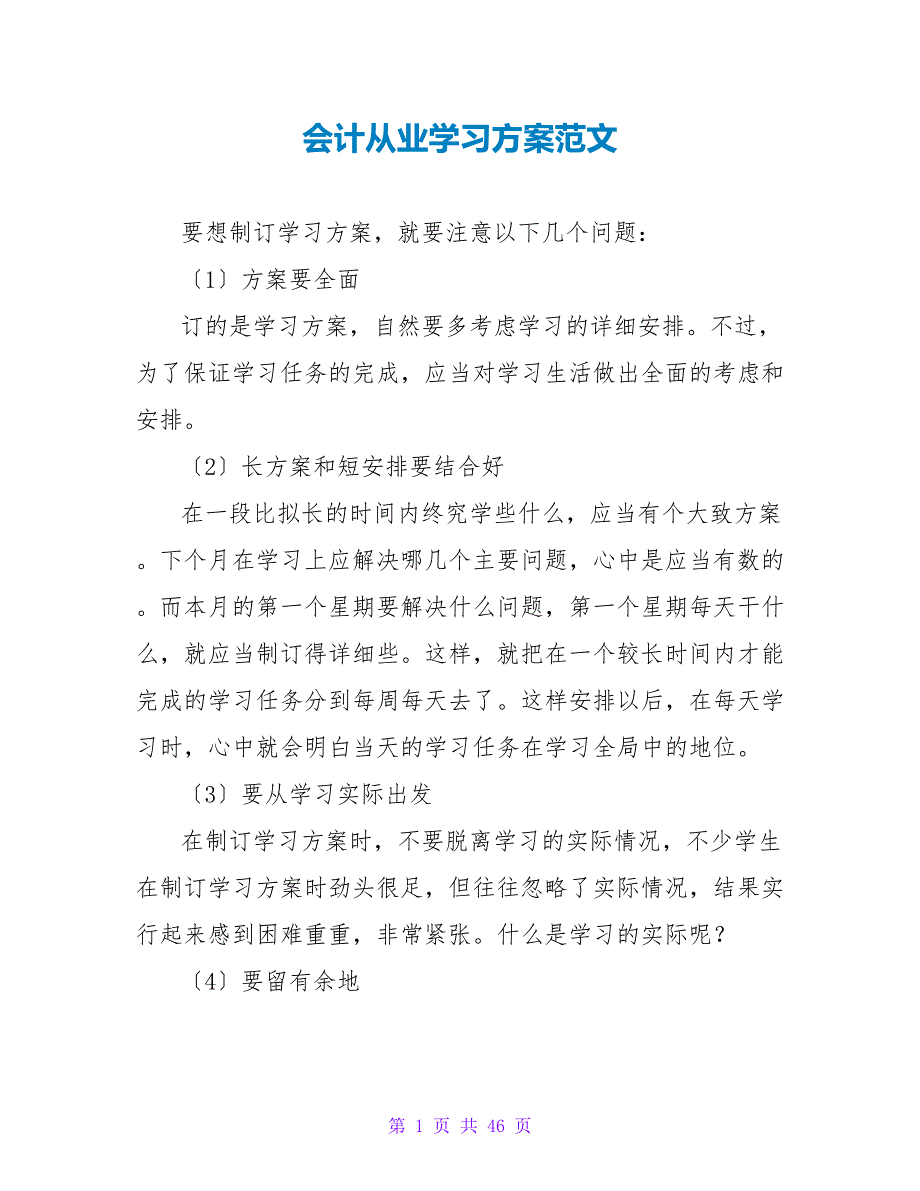 会计从业学习方案范文
要想制订学习方案，就要注意以下几个问题：
〔1〕方案要全面
订的是学习方案，自然要多考虑学习的详细安排。不过，
为了保证学习任务的完成，应当对学习生活做出全面的考虑和
安排。
〔2〕长方案和短安排要结合好
在一段比拟长的时间内终究学些什么，应当有个大致方案
。下个月在学习上应解决哪几个主要问题，心中是应当有数的
。而本月的第一个星期要解决什么问题，第一个星期每天干什
么，就应当制订得详细些。这样，就把在一个较长时间内才能
完成的学习任务分到每周每天去了。这样安排以后，在每天学
习时，心中就会明白当天的学习任务在学习全局中的地位。
〔3〕要从学习实际出发
在制订学习方案时，不要脱离学习的实际情况，不少学生
在制订学习方案时劲头很足，但往往忽略了实际情况，结果实
行起来感到困难重重，非常紧张。什么是学习的实际呢？
〔4〕要留有余地
第 1 页 共 46 页